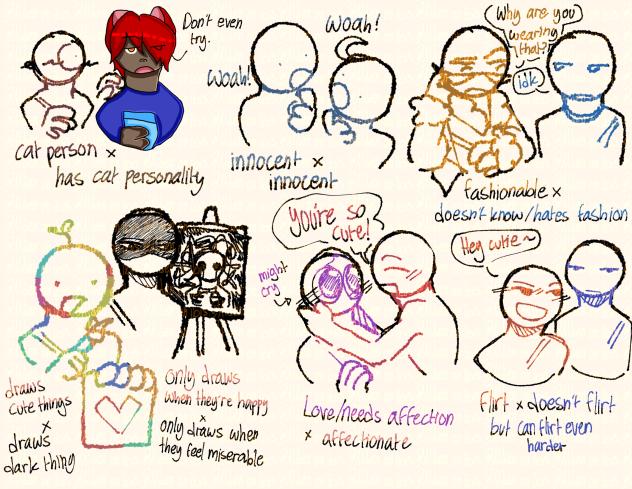 Don't even
try.
cat person x
has cat personality
woah!
woah!
innocent x
innocent
Why are you
wearing
that?
idk.
fashionable x
doesn't know/hates fashion
draws
cute things
x
draws
dark thing
only draws
when they're happy
x
only draws when
they feel miserable
You're so
cute!
might
cry
Love/needs affection
x affectionate
Hey cutie~
flirt x doesn't flirt
but can flirt even
harder